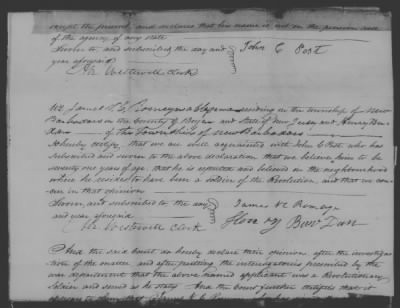 except the present, and declares that his name is not on the pension roll
of the agency of any state
Sworn to, and subscribed the day and
year aforesaid
John C Post
Westervelt Clerk
We James V. C. Romeyn a clergyman residing in the township of New
Barbadoes in the County of Bergen and State of New Jersey and Henry
of the Township of New Barbadoes
do hereby certify, that we are well acquainted with John C Post who has
subscribed and sworn to the above declaration that we believe him to be
seventy one years of age, that he is reputed and believed in the neighbourhood
where he resides to have been a soldier of the Revolution, and that we con
cur in that opinion
Sworn and subscribed to the day
and year aforesaid
James V C Romeyn
Westervelt Clerk
And the said court do hereby declare their opinion after the investiga
tion of the matter, and after putting the interrogatories prescribed by the
war department that the above named applicant was a Revolutionary
Soldier and served as he states. And the Court further certifies that it
appears to them that James V. C.